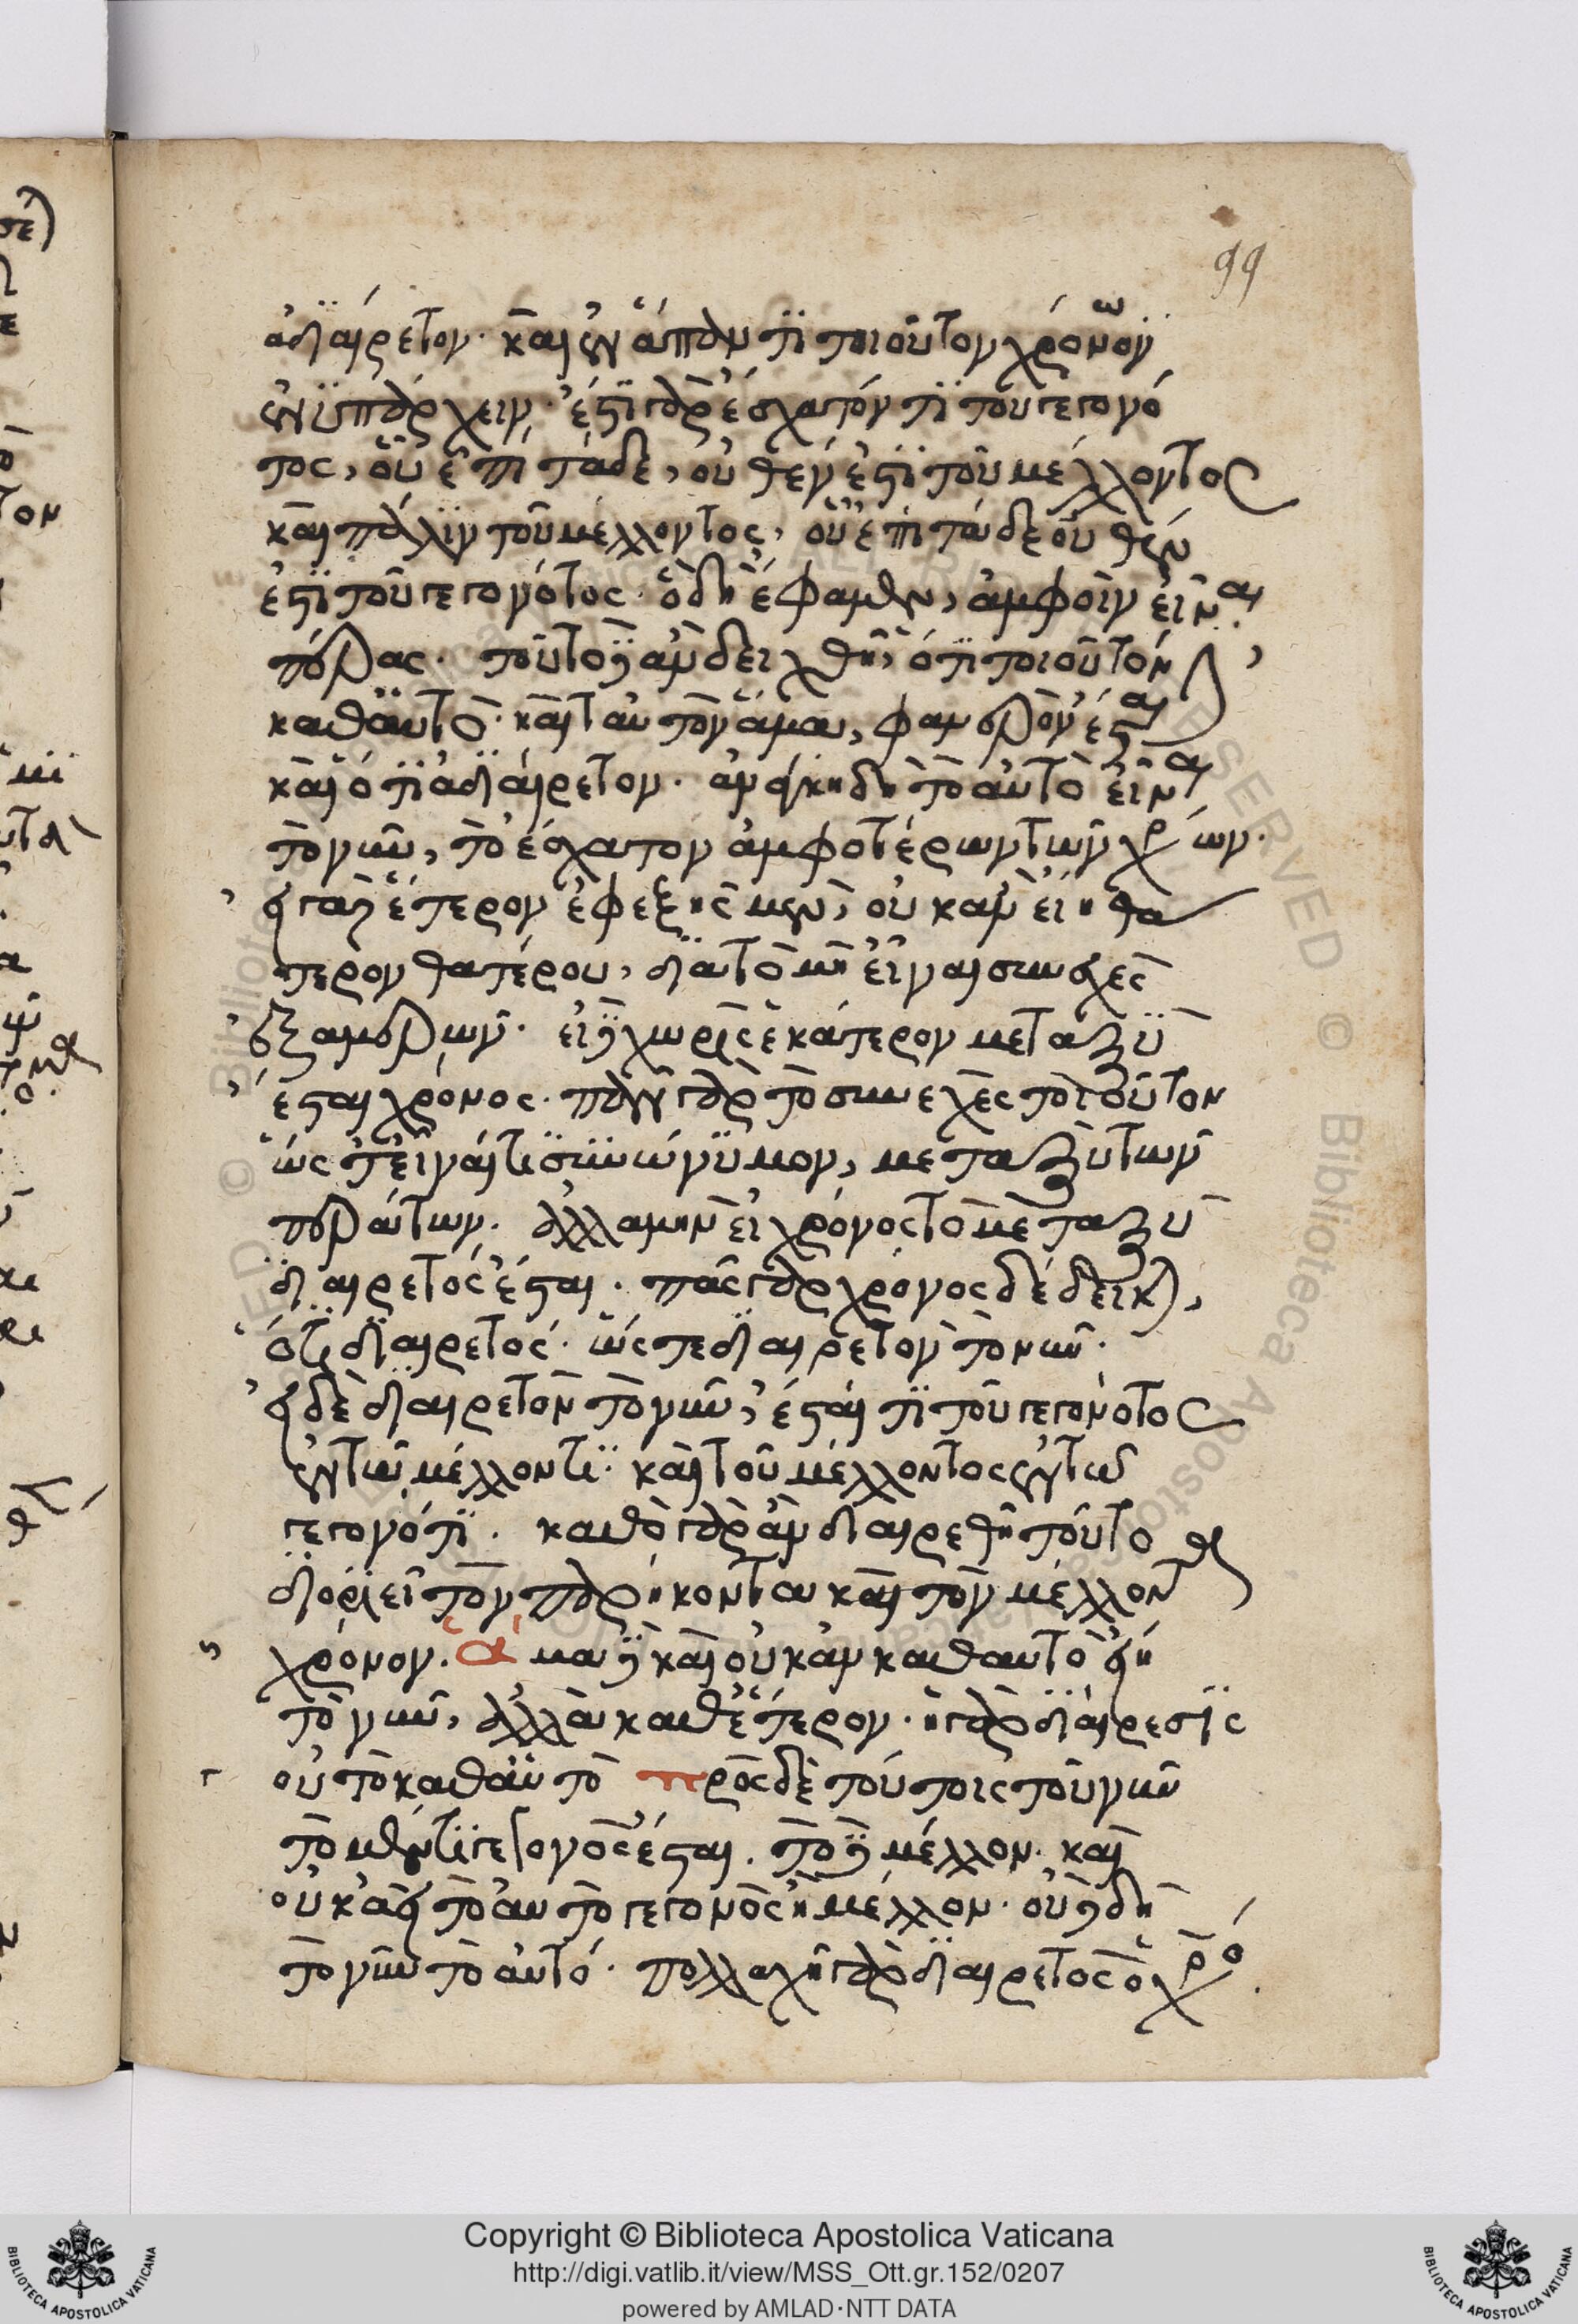 ἀδιαίρετον. καὶ ἐν ἅπαντί τι τοιοῦτον χρόνω
ἐνυπάρχειν. ἔστι γὰρ ἔσχατόν τι τοῦ γεγονό
τος, οὗ ἐπὶ τάδε, οὐθέν ἐστι τοῦ μέλλοντος
καὶ πάλιν τοῦ μέλλοντος, οὗ ἐπὶ τάδε οὐθέν
ἐστι τοῦ γεγονότος. ὃ δὴ ἔφαμεν, ἀμφοῖν εἶναι
πέρας. τοῦτο δὲ ἂν δειχθῆ, ὅτι τοιοῦτόν ἐστι,
καθ' αὑτὸ καὶ ταυτὸν ἅμα, φανερὸν ἔσται
καὶ ὅτι ἀδιαίρετον. ἀνάγκη δὴ τὸ αὐτὸ εἶναι
τὸ νῦν, τὸ ἔσχατον ἀμφοτέρων τῶν χρόνων.
εἰ γὰρ ἕτερον ἐφεξῆς μὲν, οὐκ ἂν εἴη θά
τερον θατέρου, διὰ τὸ μὴ εἶναι συνεχὲς
ἐξ ἀμερῶν. εἰ δὲ χωρὶς ἑκάτερον μεταξὺ
ἔσται χρόνος. πᾶν γὰρ τὸ συνεχὲς τοιοῦτον
ὥς τ' εἶναί τι συνώνυμον, μεταξὺ τῶν
περάτων. ἀλλὰ μὴν εἰ χρόνος τὸ μεταξὺ
διαιρετὸς ἔσται. πᾶς γὰρ χρόνος δέδεικται,
ὅτι διαιρετός. ὥς τε διαιρετὸν τὸ νῦν.
εἰ δὲ διαιρετὸν τὸ νῦν, ἔσται τι τοῦ γεγονότος
ἐν τῶ μέλλοντι. καὶ τοῦ μέλλοντος ἐν τῶ
γεγονότι. καθὸ γὰρ ἂν διαιρεθῆ τοῦτο
διοριεῖ τὸν παρήκοντα καὶ τὸν μέλλοντα
χρόνον. ἅμα δὲ καὶ οὐκ ἂν καθ' αὑτὸ εἴη
τὸ νῦν, ἀλλὰ καθ' ἕτερον. ἡ γὰρ διαίρεσις
οὐ τὸ καθ' αὑτὸ πρὸς δὲ τούτοις τοῦ νῦν
τὸ μέν τι γεγονὸς ἔσται. τὸ δὲ μέλλον. καὶ
οὐκ ἀεὶ τὸ αὐτὸ γεγονὸς ἢ μέλλον. οὐδὲ δὴ
τὸ νῦν τὸ αὐτό. πολλαχῆ γὰρ διαιρετὸς ὁ χρόνος.
99
Copyright © Biblioteca Apostolica Vaticana
http://digi.vatlib.it/view/MSS_Ott.gr.152/0207
powered by AMLAD·NTT DATA